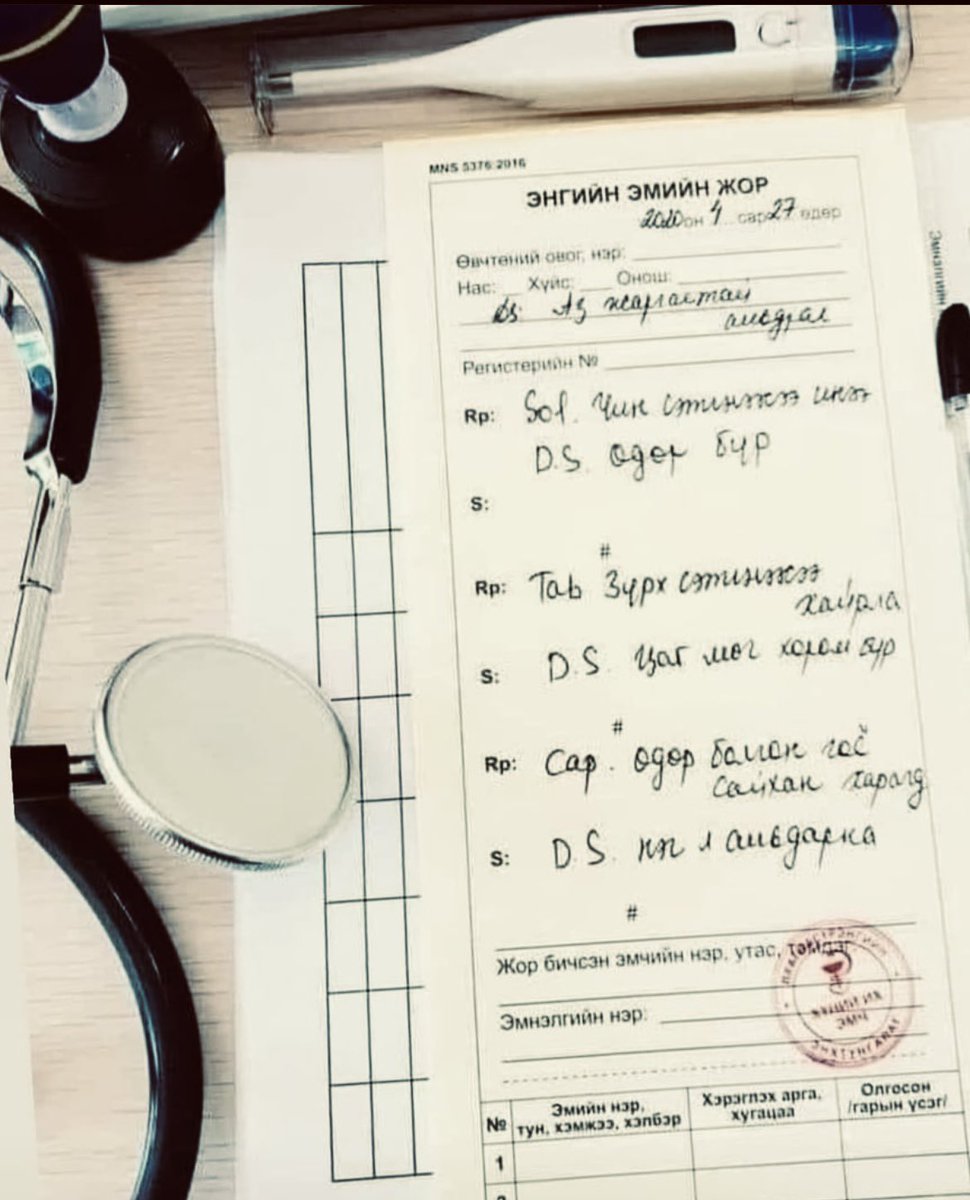 MNS 5376:2016
ЭНГИЙН ЭМИЙН ЖОР
2020 он 4 сар 27 өдөр
Өвчтөний овог, нэр:
Нас: Хүйс: Онош:
Ds: Аз жаргалтай
амьдрал
Регистерийн №
Rp: Sol. Чин сэтгэлээсээ инээ
D.S. Өдөр бүр
S:
#
Rp: Tab Зүрх сэтгэлээсээ
хайрла
S: D.S. Цаг мөч хором бүр
#
Rp: Сар. өдөр болгон гоё
сайхан харагд
S: D.S. нэг л амьдарна
#
Жор бичсэн эмчийн нэр, утас, тэмдэг
Эмнэлгийн нэр:
ЭНХТУНГАЛАГ
№ Эмийн нэр, тун, хэмжээ, хэлбэр Хэрэглэх арга, хугацаа Олгосон /гарын үсэг/
1
Эмнэлгийн